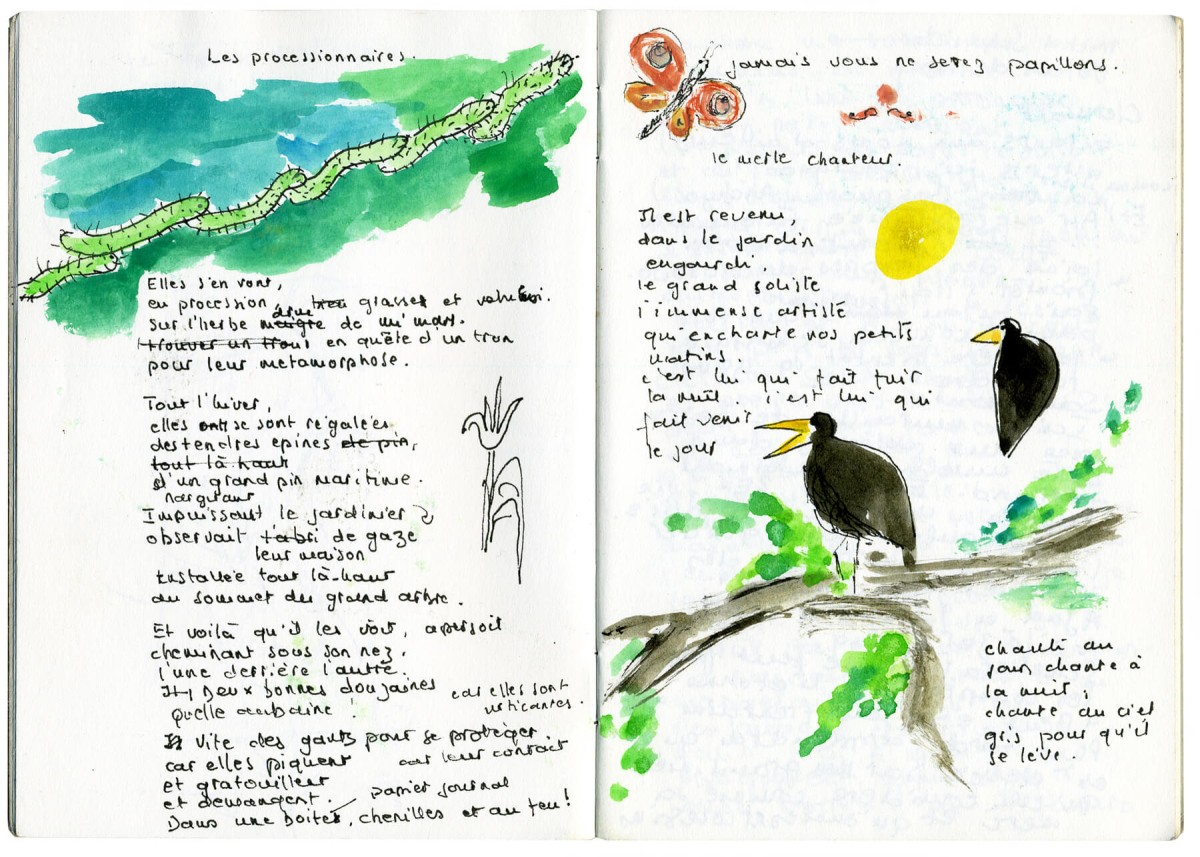 Les processionnaires.
Elles s'en vont,
en procession grasses et velues.
Sur l'herbe drue de mi mars.
en quête d'un trou
pour leur metamorphose.
Tout l'hiver,
elles se sont régalées
des tendres epines de pin,
tout là haut
d'un grand pin maritime.
narguant
Impuissant le jardinier
observait l'abri de gaze
leur maison
installée tout là-haut
au sommet du grand arbre.
Et voilà qu'il les voit, aperçoit
cheminant sous son nez,
l'une derrière l'autre.
Deux bonnes douzaines
quelle aubaine !
car elles sont
urticantes.
Vite des gants pour se protéger.
car elles piquent
car leur contact
et gratouillent
et demangent.
papier journal
Dans une boite, chenilles et au feu !
jamais vous ne serez papillons.
le merle chanteur.
Il est revenu,
dans le jardin
engourdi.
le grand soliste
l'immense artiste
qui enchante nos petits
matins.
c'est lui qui fait fuir
la nuit c'est lui qui
fait venir
le jour
chante au
jour chante à
la nuit,
chante au ciel
gris pour qu'il
se lève.